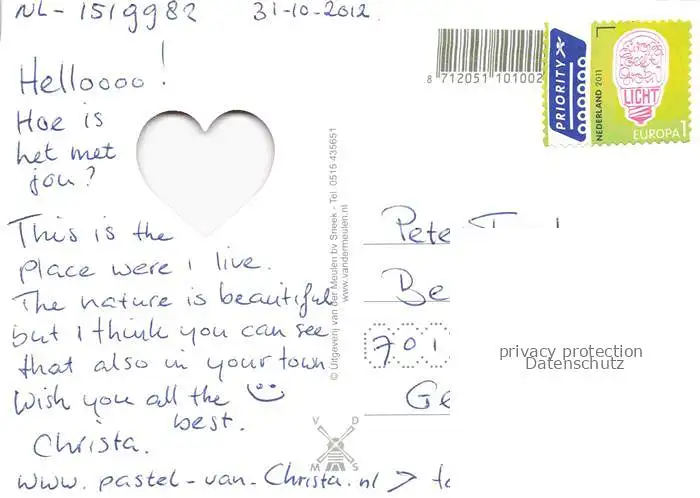 NL-1519982 31-10-2012.
Helloooo!
Hoe is
het met
jou?
This is the
place were i live.
The nature is beautiful
but i think you can see
that also in your town
Wish you all the
best.
Christa.
www.pastel-van-Christa.nl >
8 712051 101002
PRIORITY
NEDERLAND 2011
LICHT
EUROPA 1
© Uitgeverij van der Meulen bv Sneek - Tel. 0515-435651
www.vandermeulen.nl
Pete
Be
701
Ge
privacy protection
Datenschutz
V D
M S